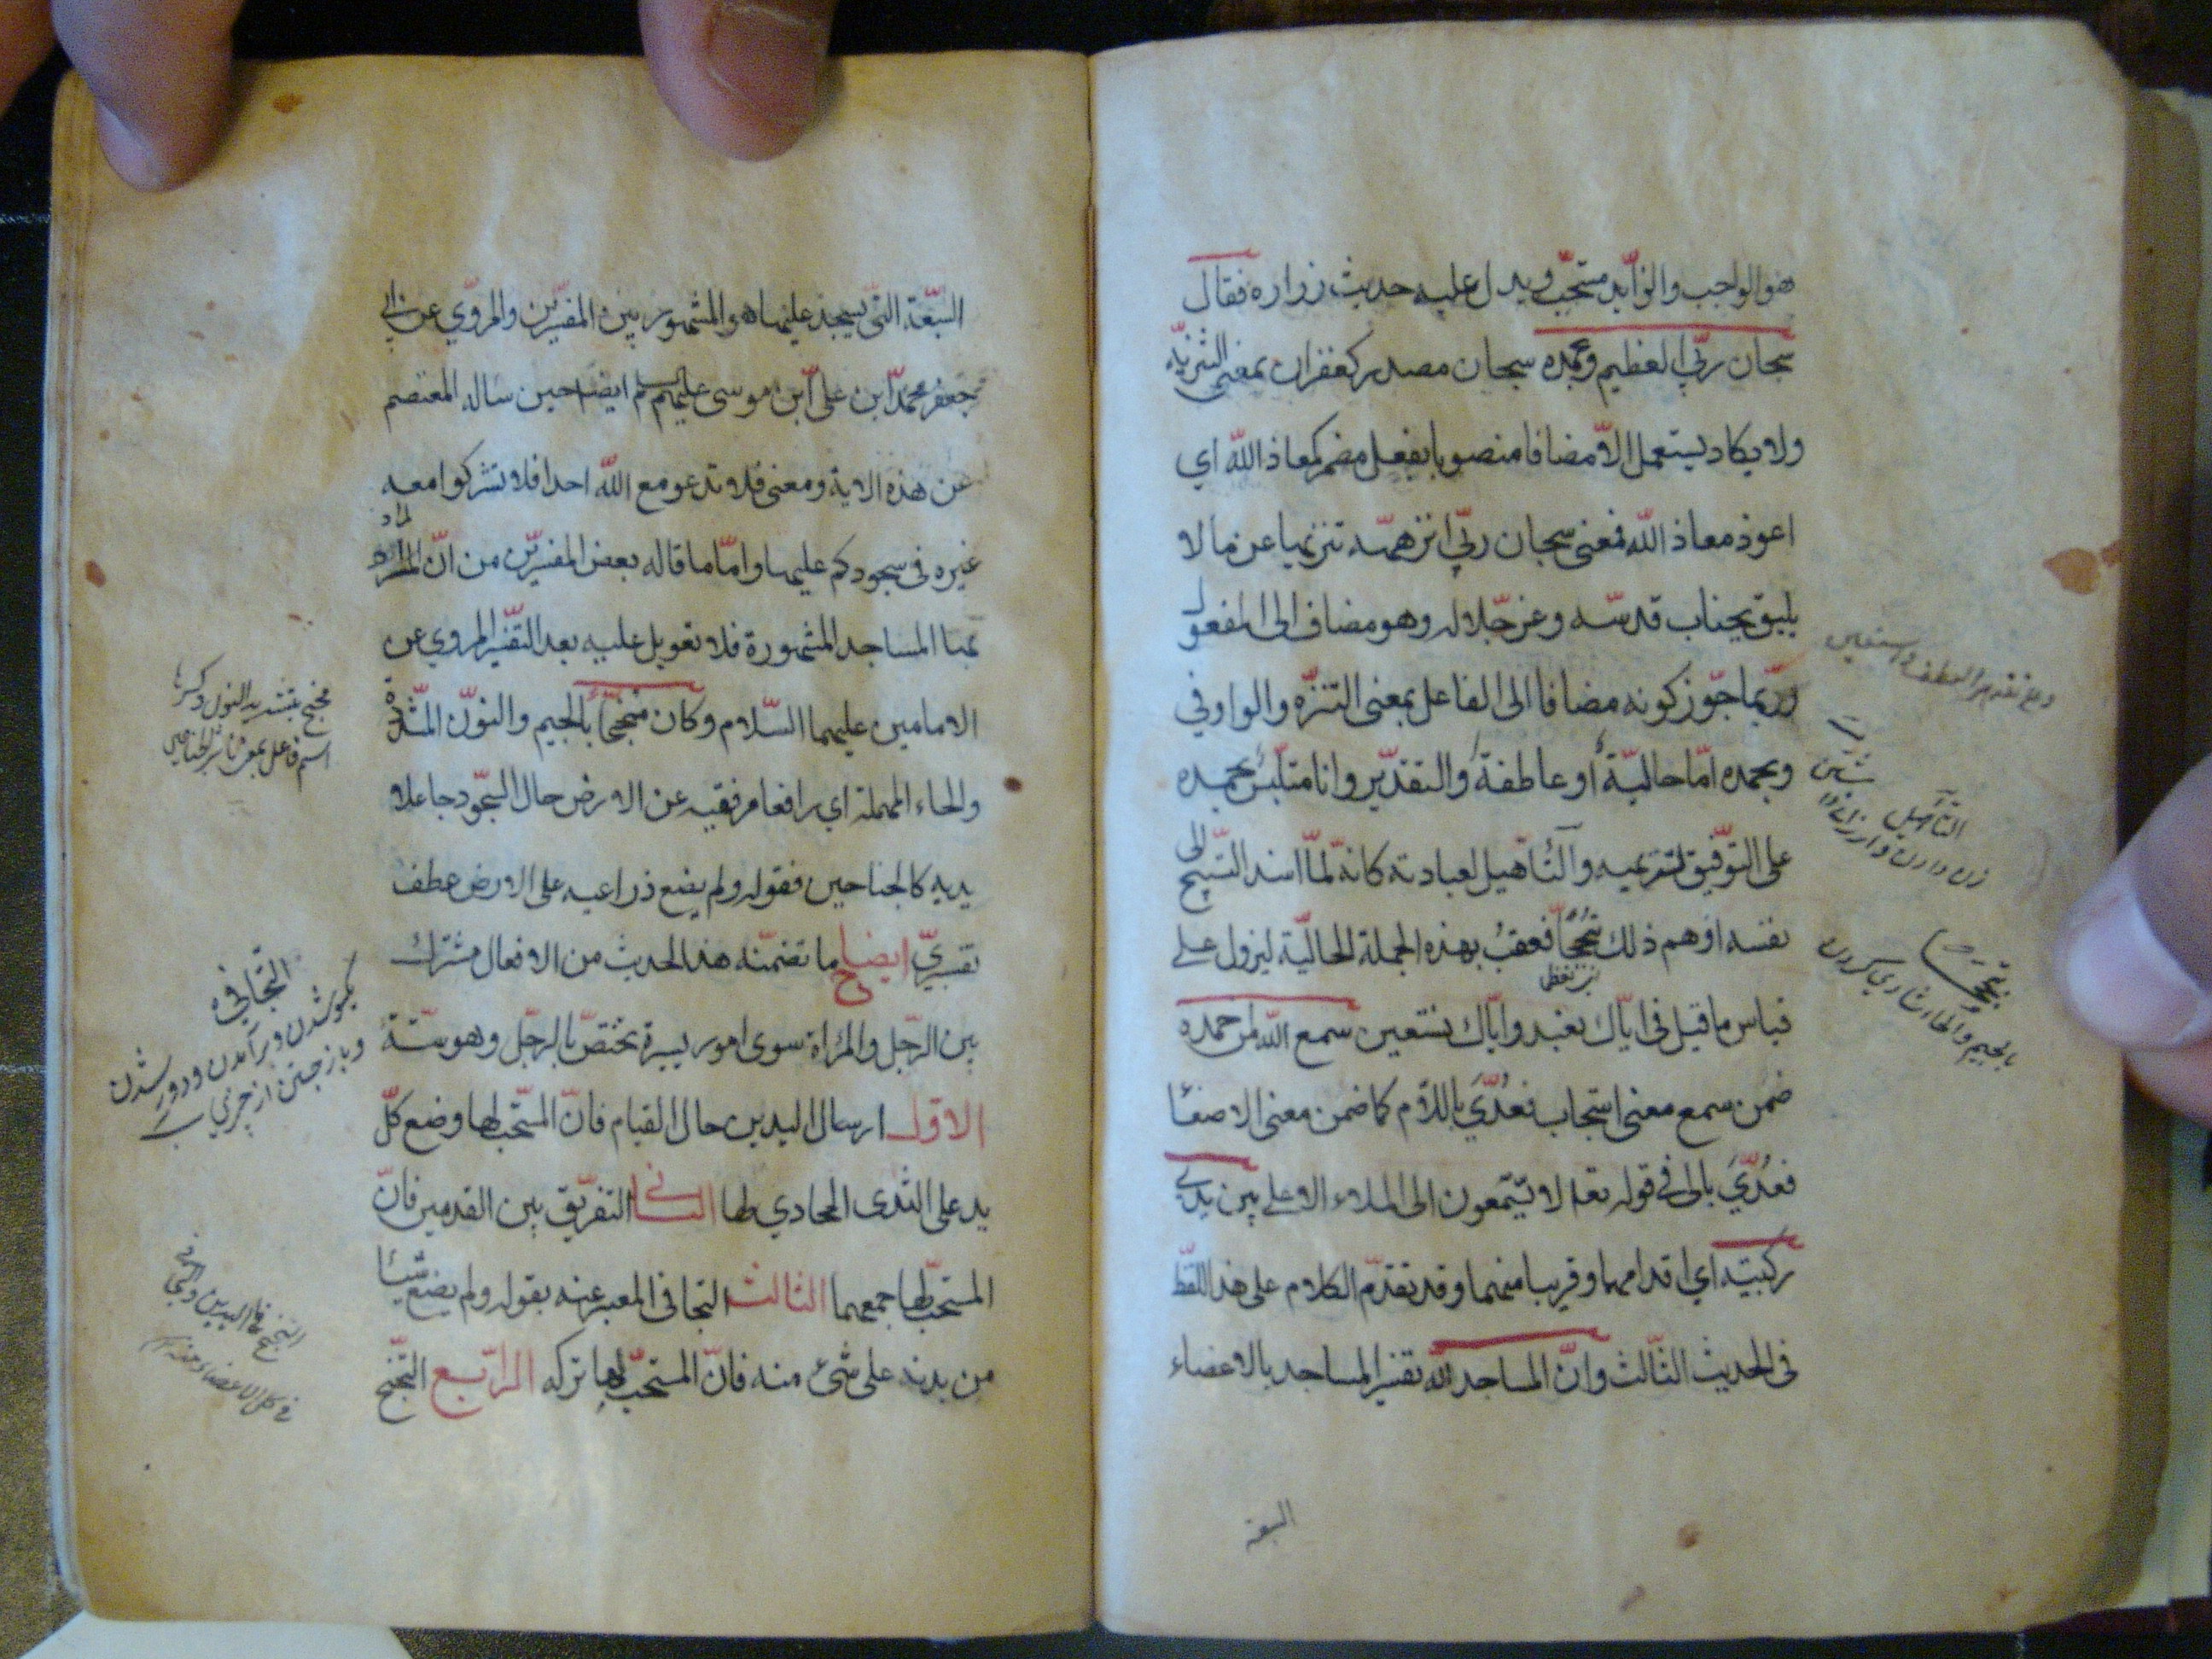 هو الواجب والزايد مستحب ويدل عليه حديث زراره فقال
سبحان ربي العظيم وبحمده سبحان مصدر كغفران بمعنى التنزيه
ولا يكاد يستعمل الا مضافا منصوبا بفعل مضمر كمعاذ الله اي
اعوذ معاذ الله فمعنى سبحان ربي انزهه تنزيها عن ما لا
يليق بجناب قدسه وعز جلاله وهو مضاف الى المفعول
وربما جوز كونه مضافا الى الفاعل بمعنى التنزه والواو في
وبحمده اما حالية او عاطفة والتقدير وانا متلبس بحمده
على التوفيق لتنزيهه والتأهيل لعبادته كانه لما اسند التسبيح الى
نفسه اوهم ذلك تبجحا فعقب بهذه الجملة الحالية ليزول على
قياس ما قيل في اياك نعبد واياك نستعين سمع الله لمن حمده
ضمن سمع معنى استجاب فعدي باللام كما ضمن معنى الاصغا
فعدي بالى في قوله تعا لا يسمعون الى الملاء الاعلى بين يدي
ركبتيه اي قدامهما وقريبا منهما وقد تقدم الكلام على هذا اللفظ
في الحديث الثالث وان المساجد لله تفسير المساجد بالاعضاء
السبعة
التأهيل
تبجحا
السبعة التي يسجد عليها هو المشهور بين المفسرين والمروي عن ابي
جعفر محمد ابن علي ابن موسى عليهم السلم ايضا حين ساله المعتصم
عن هذه الاية ومعنى فلا تدعو مع الله احدا فلا تشركوا معه
غيره في سجودكم عليها واما ما قاله بعض المفسرين من ان المراد
بها المساجد المشهورة فلا تعويل عليه بعد التفسير المروي عن
الامامين عليهما السلام وكان مجنحا بالجيم والنون المشددة
والحاء المهملة اي رافعا مرفقيه عن الارض حال السجود جاعلا
يديه كالجناحين فقوله ولم يضع ذراعيه على الارض عطف
تفسيري ايضاح ما تضمنه هذا الحديث من الافعال مشترك
بين الرجل والمراة سوى امور يسيرة يختص بالرجل وهو ستة
الاول ارسال اليدين حال القيام فان المستحب لها وضع كل
يد على الثدي المحاذي لها الثاني التفريق بين القدمين فان
المستحب لها جمعهما الثالث التجافي المعبر عنه بقوله ولم يضع شيئا
من بدنه على شئ منه فان المستحب لها تركه الرابع التجنح
مجنح بتشديد النون وكسرها
التجافي
يكسو شدن وبرآمدن ودور شدن
وباز جستن از چيزى